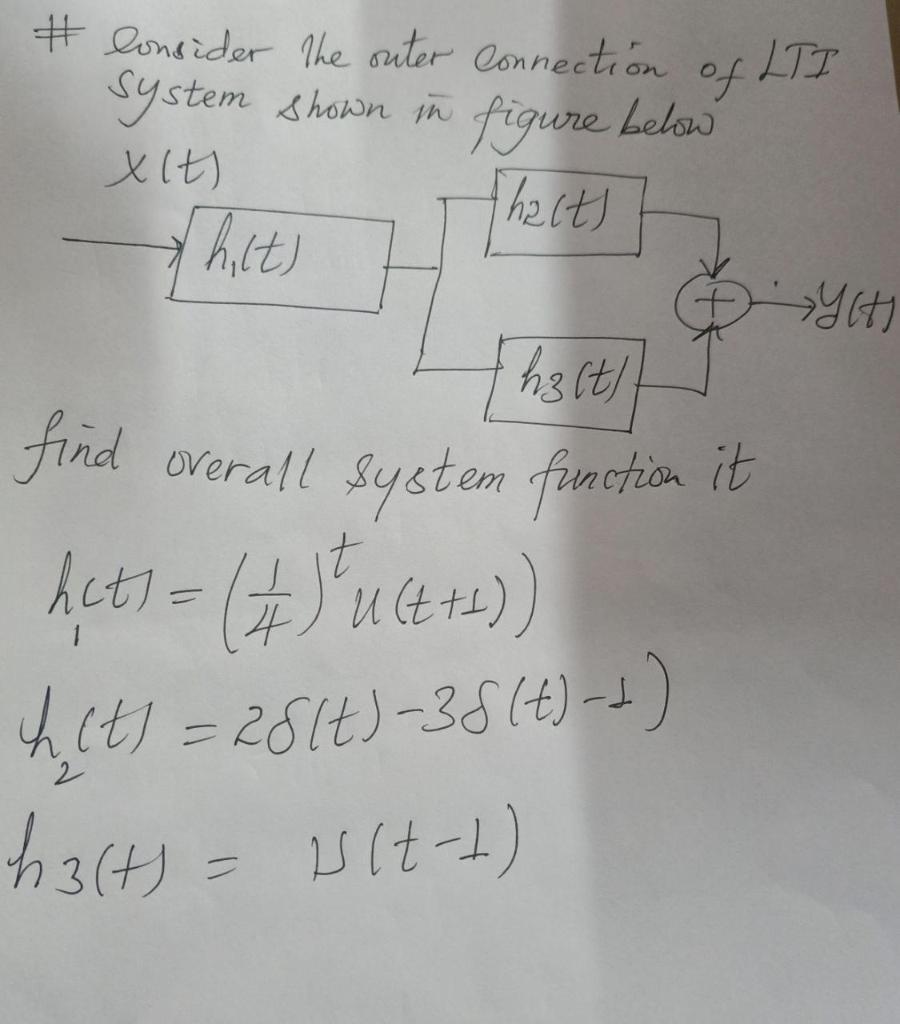 # Consider the outer Connection of LTI
system shown in figure below
X(t)
h2(t)
h1(t)
+ y(t)
h3(t)
find overall system function it
h1(t) = (1/4)^t u(t+1))
h2(t) = 2δ(t) -3δ(t) -1)
h3(t) = u(t-1)